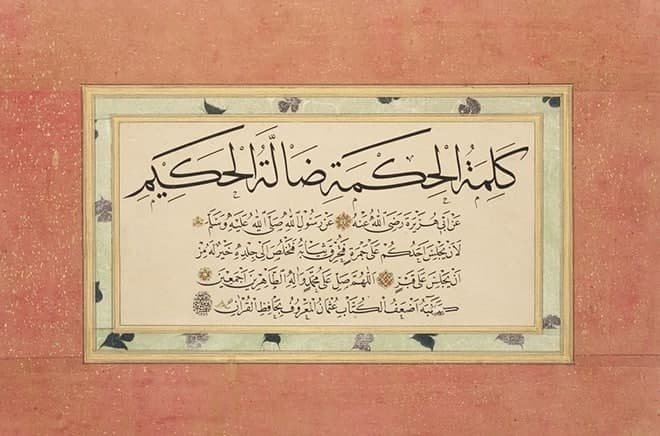 كَلِمَةُ الْحِكْمَةِ ضَالَّةُ الْحَكِيمِ
عن ابى هريرة رضى الله عنه عن رسول الله صلى الله عليه وسلم
لان يجلس احدكم على جمرة فتحرق ثيابه فتخلص الى جلده خير له من
ان يجلس على قبر اللهم صل على محمد واله الطاهرين اجمعين
كتبه اضعف الكتاب عثمان المعروف بحافظ القرآن